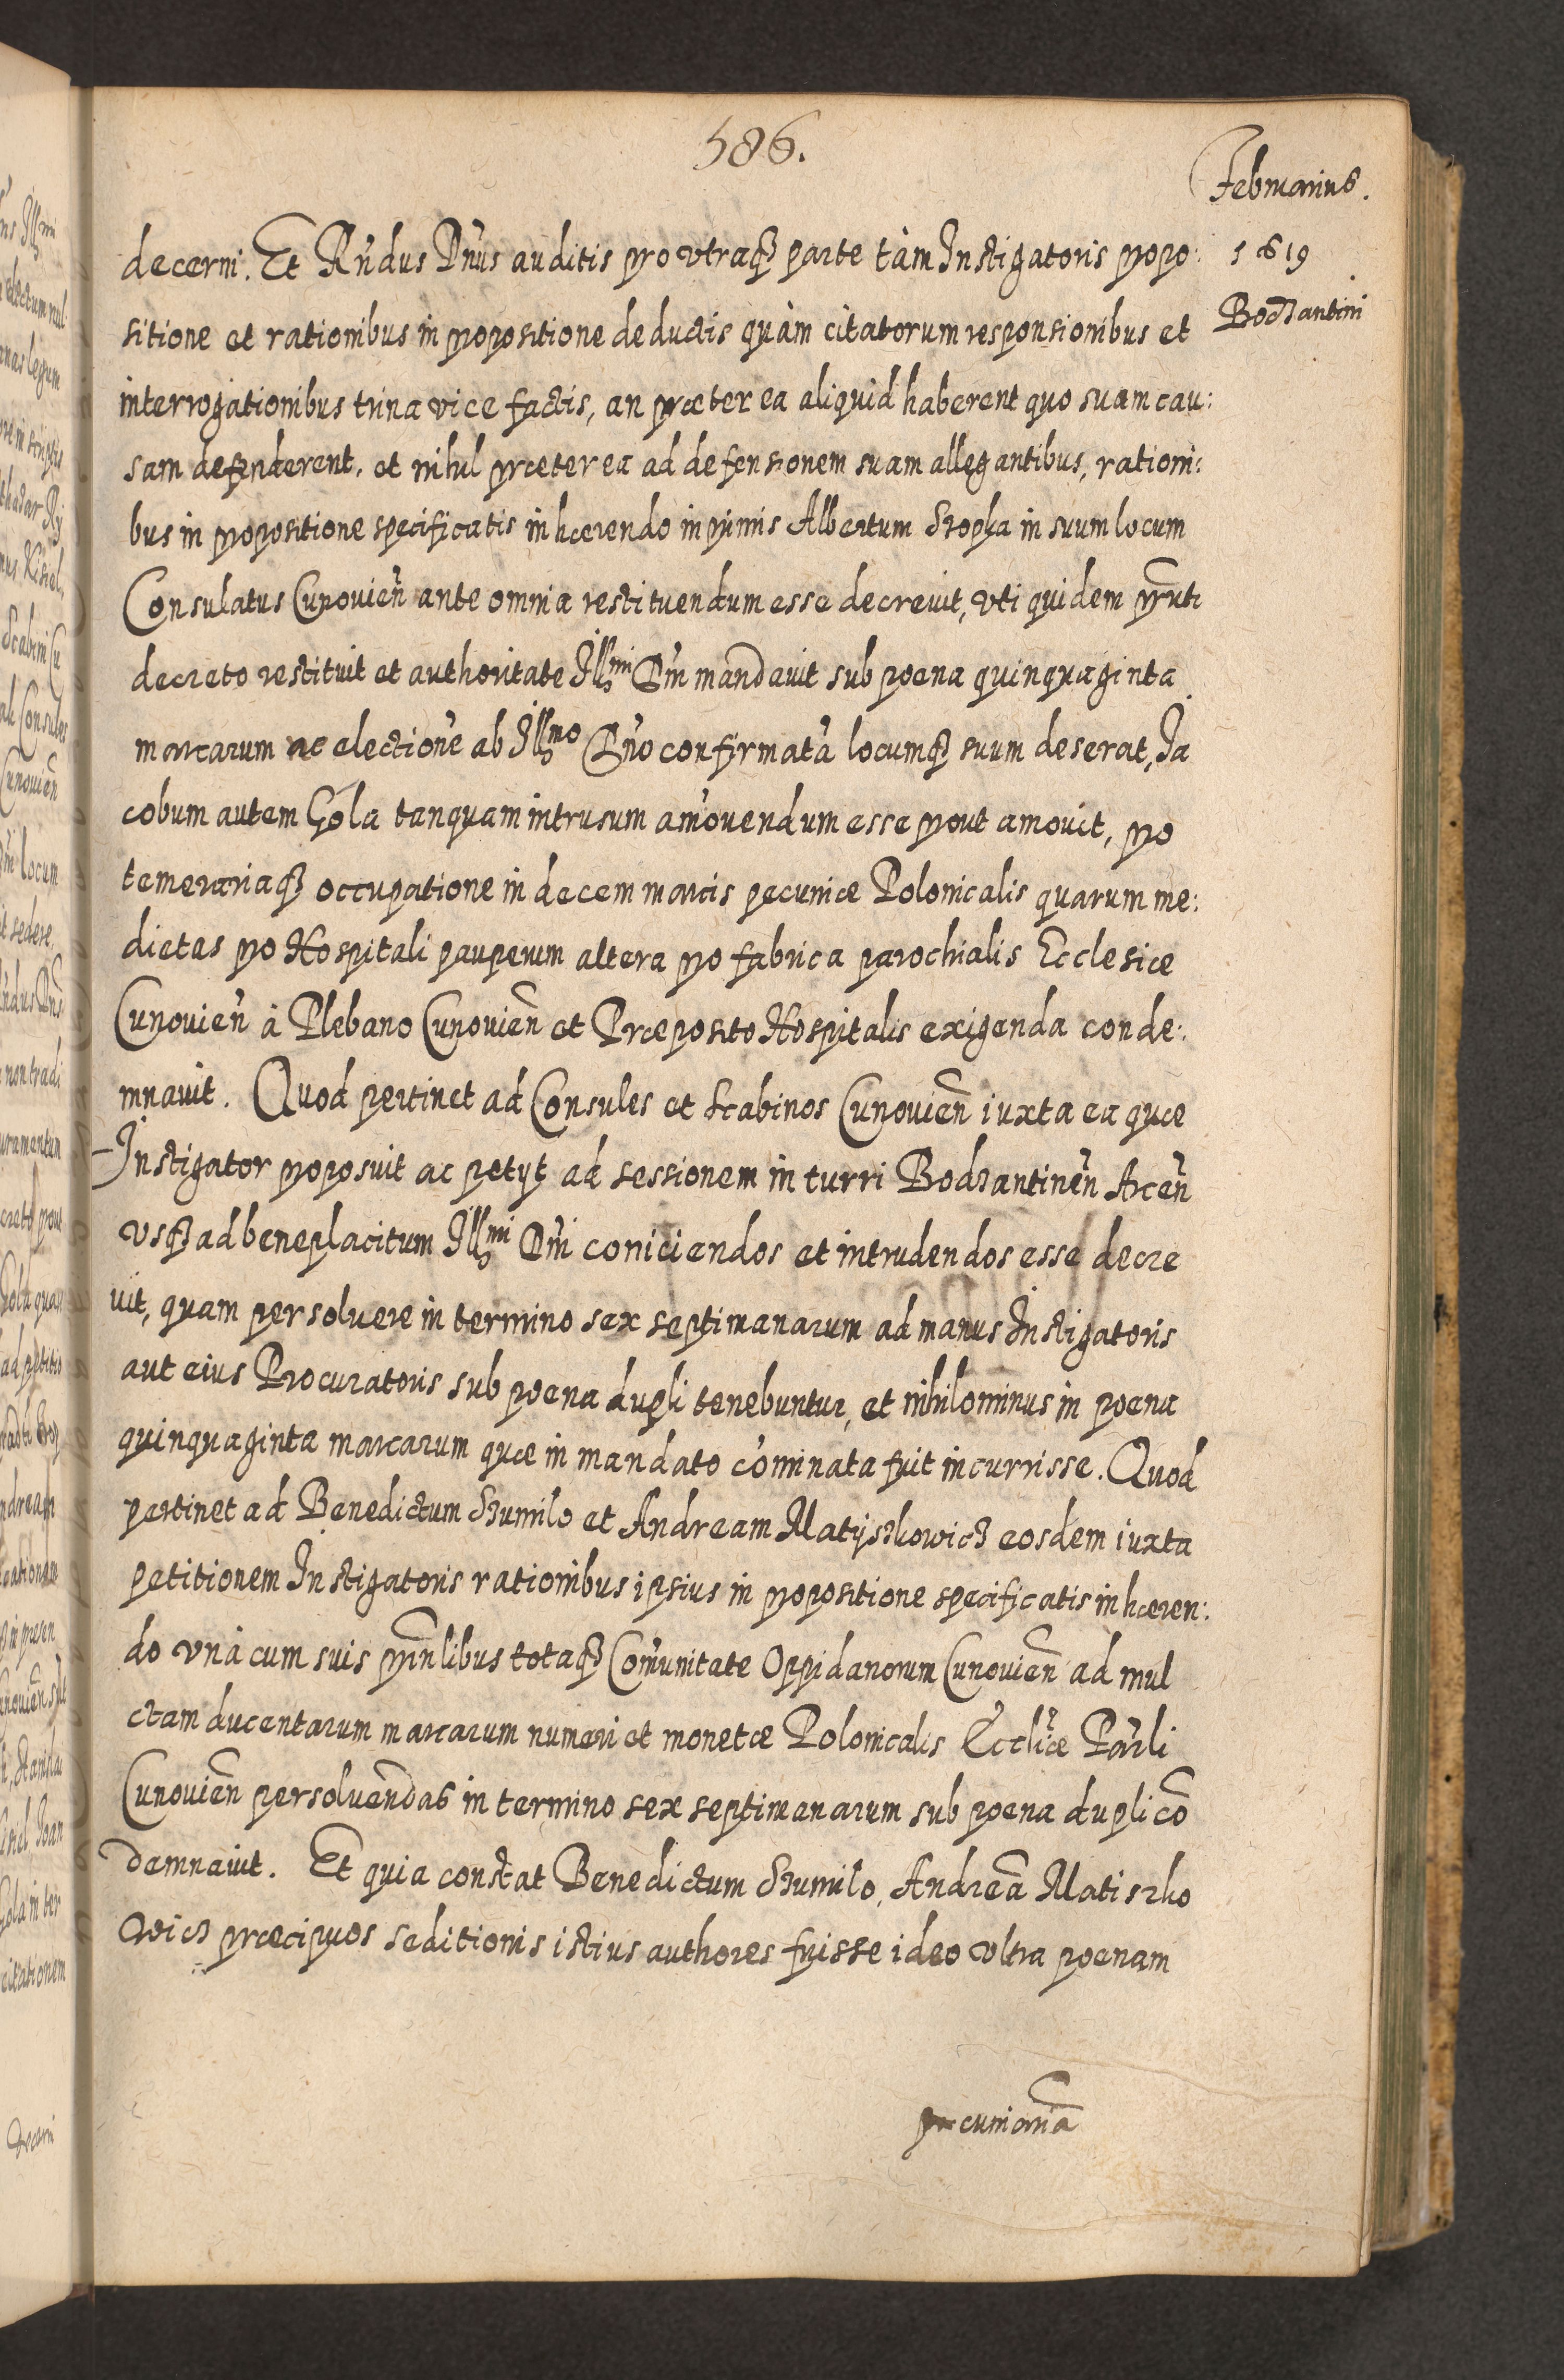 586.
Februarius.
1619
Bodzantini
decerni. Et Rńdus Dńus auditis pro vtraqȝ parte tàm Instigatoris propo:
sitione et rationibus in propositione deductis quàm citatorum responsionibus et
interrogationibus trina vice factis, an præter ea aliquid haberent quo suam cau:
sam defenderent, et nihil præterea ad defensionem suam allegantibus, rationi:
bus in propositione specificatis inhærendo in primis Albertum Szopka in suum locum
Consulatus Cunovień ante omnia restituendum esse decrevit, vti quidem pr̃nti
decreto restituit et authoritate Illmi Dńi mandavit sub poena quinquaginta
marcarum ne electione ab Illmo Dńo confirmatã locumqȝ suum deserat, Ja
cobum autem Gola tanquam intrusum amovendum esse prout amovit, pro
temerariaqȝ occupatione in decem marcis pecuniæ Polonicalis quarum me:
dietas pro Hospitali pauperum altera pro fabrica parochialis Ecclesiæ
Cunovień à Plebano Cunovień et Præposito Hospitalis exigenda conde:
mnavit. Quod pertinet ad Consules et Scabinos Cunovień iuxta ea quæ
Instigator proposuit ac petyt ad sessionem in turri Bodzantineń Arceń
vsqȝ ad beneplacitum Illmi Dńi coniiciendos et intrudendos esse decre
vit, quam persolvere in termino sex septimanarum ad manus Instigatoris
aut eius Procuratoris sub poena dupli tenebuntur, et nihilominus in poena
quinquaginta marcarum quæ in mandato cõminata fuit incurrisse. Quod
pertinet ad Benedictum Szumilo et Andream Matyszkowicz eosdem iuxta
petitionem Instigatoris rationibus ipsius in propositione specificatis inhæren:
do vnà cum suis prin̄libus totaqȝ Com̃unitate Oppidanorum Cunovień ad mul
ctam ducentarum marcarum numeri et monetæ Polonicalis Eccl̃iæ Par̃li
Cunovień persolvendas in termino sex septimanarum sub poena dupli cõ
demnavit. Et quia constat Benedictum Szumilo, Andreã Matiszko
wicz præcipuos seditionis istius authores fuisse ideo vltra poenam
pecuniariã